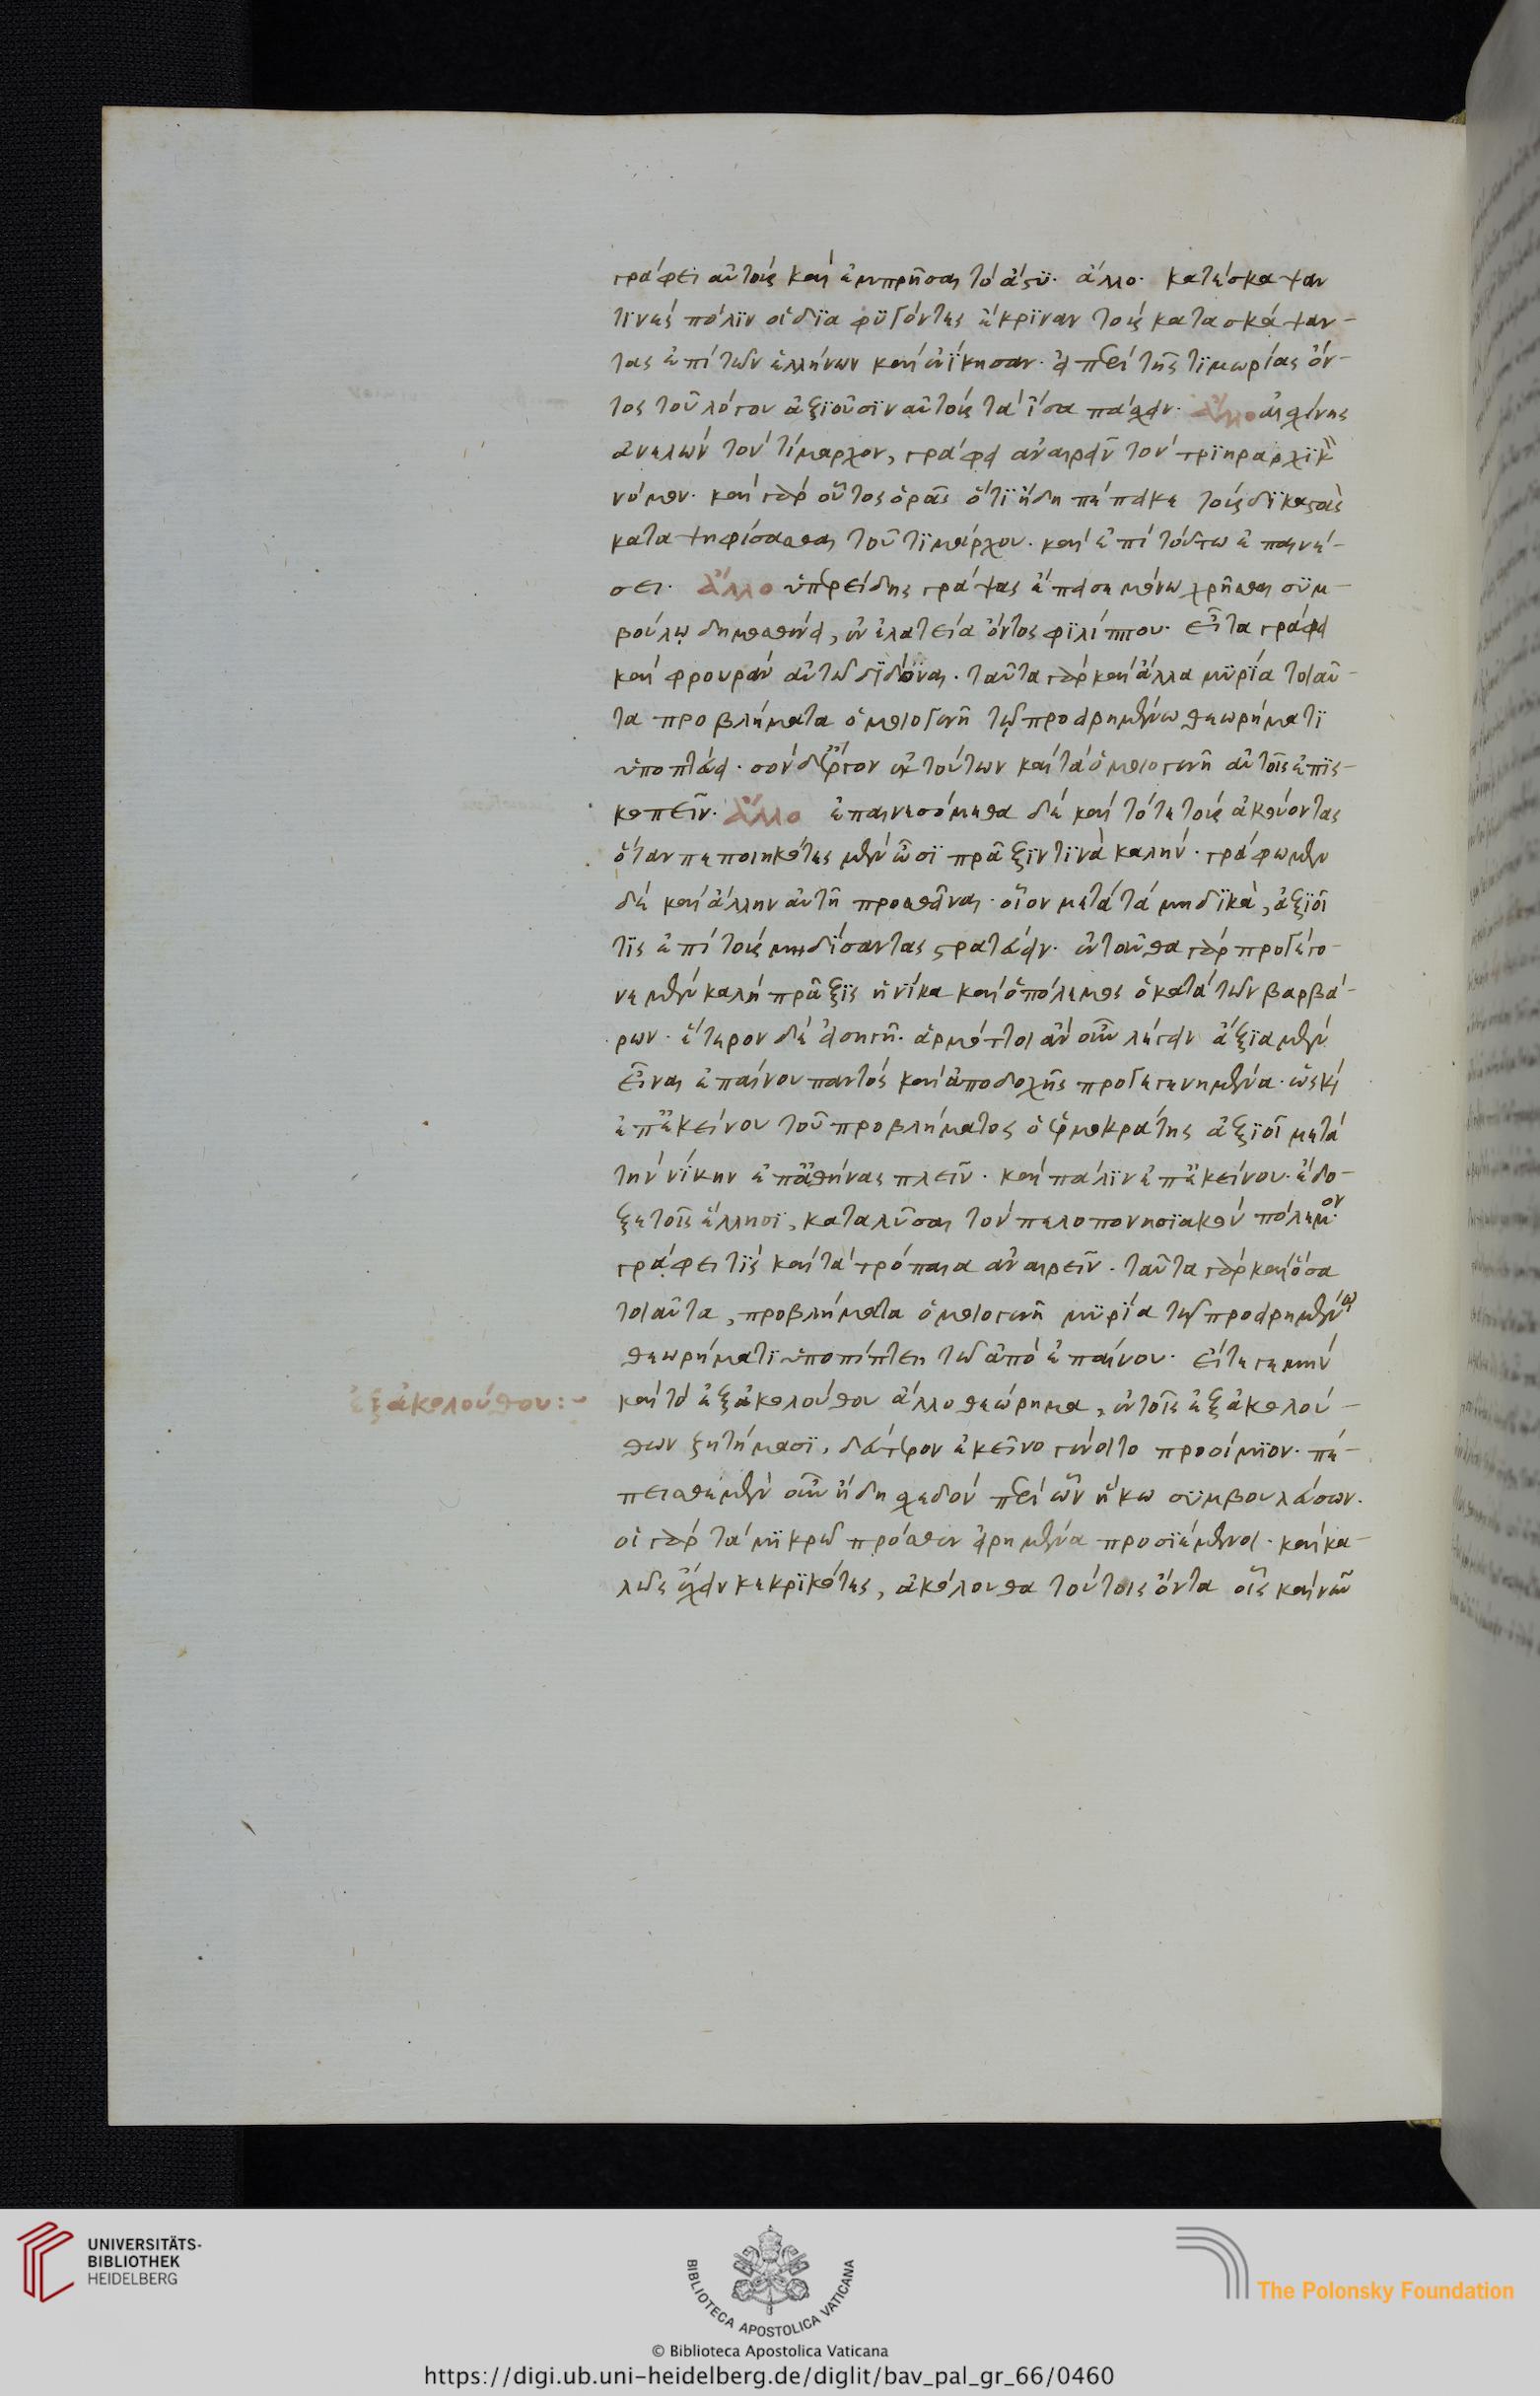 γράφει αὐτοὺς καὶ ἐμπρῆσαι τὸ ἄστυ· ἄλλο· κατέσκαψάν
τινες πόλιν οἱ διαφυγόντες ἔκριναν τοὺς κατασκάψαν-
τας ἐπὶ τῶν ἑλλήνων καὶ ἐνίκησαν· εἶ περὶ τῆς τιμωρίας ὄν-
τος τοῦ λόγου ἀξιοῦσιν αὐτοὺς τὰ ἴσα παθεῖν· ἄλλο αἰσχίνης
ἀνελὼν τὸν τίμαρχον, γράφει ἀναιρεῖν τὸν τριηραρχικ
νόμον· καὶ γὰρ οὗτος ὁρᾷς ὅτι ἤδη πέπεικε τοὺς δικαστὰς
καταψηφίσασθαι τοῦ τιμάρχου· καὶ ἐπὶ τούτω ἐπαινέ-
σει· ἄλλο ὑπερείδης γράψας ἔπεισε μόνω χρῆσθαι συμ-
βούλῳ δημοσθένει, ἐν ἐλατεία ὄντος φιλίππου· εἶτα γράφει
καὶ φρουρὰν αὐτῶ διδόναι· ταῦτα γὰρ καὶ ἄλλα μυρία τοιαῦ-
τα προβλήματα ὁμοιογενῆ τῷ προειρημένω θεωρήματι
ὑποπτεύει· σὸν δ' ἔργον ἐκ τούτων καὶ τὰ ὁμοιογενῆ αὐτοῖς ἐπισ-
κοπεῖν· ἄλλο ἐπαινεσόμεθα δὲ καὶ τότε τοὺς ἀκούοντας
ὅταν πεποιηκότες μὲν ὦσι πρᾶξιν τινὰ καλήν· γράφωμεν
δὲ καὶ ἄλλην αὐτῆ προσθεῖναι· οἷον μετὰ τὰ μηδικὰ, ἀξιοῖ
τις ἐπὶ τοὺς μηδίσαντας στρατεύειν· ἐνταῦθα γὰρ προγέγο-
νε μὲν καλὴ πρᾶξις ἡ νίκα καὶ ὁ πόλεμος ὁ κατὰ τῶν βαρβά-
ρων· ἕτερον δὲ εἰσηγῆ· ἁρμόττοι ἂν οὖν λέγειν ἄξια μὲν
εἶναι ἐπαίνου παντὸς καὶ ἀποδοχῆς προγεγενημένα· ὡς καὶ
ἐπ' ἐκείνου τοῦ προβλήματος ὁ ἑρμοκράτης ἀξιοῖ μετὰ
τὴν νίκην ἐπ' ἀθήνας πλεῖν· καὶ πάλιν ἐπ' ἐκείνου· ἔδο-
ξε τοῖς ἕλλησι, καταλῦσαι τὸν πελοπονησιακὸν πόλεμον·
γράφει τὶς καὶ τὰ τρόπαια ἀναιρεῖν· ταῦτα γὰρ καὶ ὅσα
τοιαῦτα, προβλήματα ὁμοιογενῆ μυρία τῷ προειρημένω
θεωρήματι ὑποπίπτει τῶ ἀπὸ ἐπαίνου· εἴτε γε μὴν
ἐξ ἀκολούθου:~ καὶ τὸ ἐξ ἀκολούθου ἄλλο θεώρημα, ἐν τοῖς ἐξ ἀκολού-
θων ζητήμασι, δεύτερον ἐκεῖνο γένοιτο προοίμιον· πέ-
πεισθε μὲν οὖν ἤδη σχεδὸν περὶ ὧν ἥκω συμβουλεύσων·
οἱ γὰρ τὰ μικρῶ πρόσθεν εἰρημένα προσιέμενοι· καὶ κα-
λῶς ἔχειν κεκρικότες, ἀκόλουθα τούτοις ὄντα οἷς καὶ νῦν
UNIVERSITÄTS-
BIBLIOTHEK
HEIDELBERG
BIBLIOTECA APOSTOLICA VATICANA
The Polonsky Foundation
© Biblioteca Apostolica Vaticana
https://digi.ub.uni-heidelberg.de/diglit/bav_pal_gr_66/0460